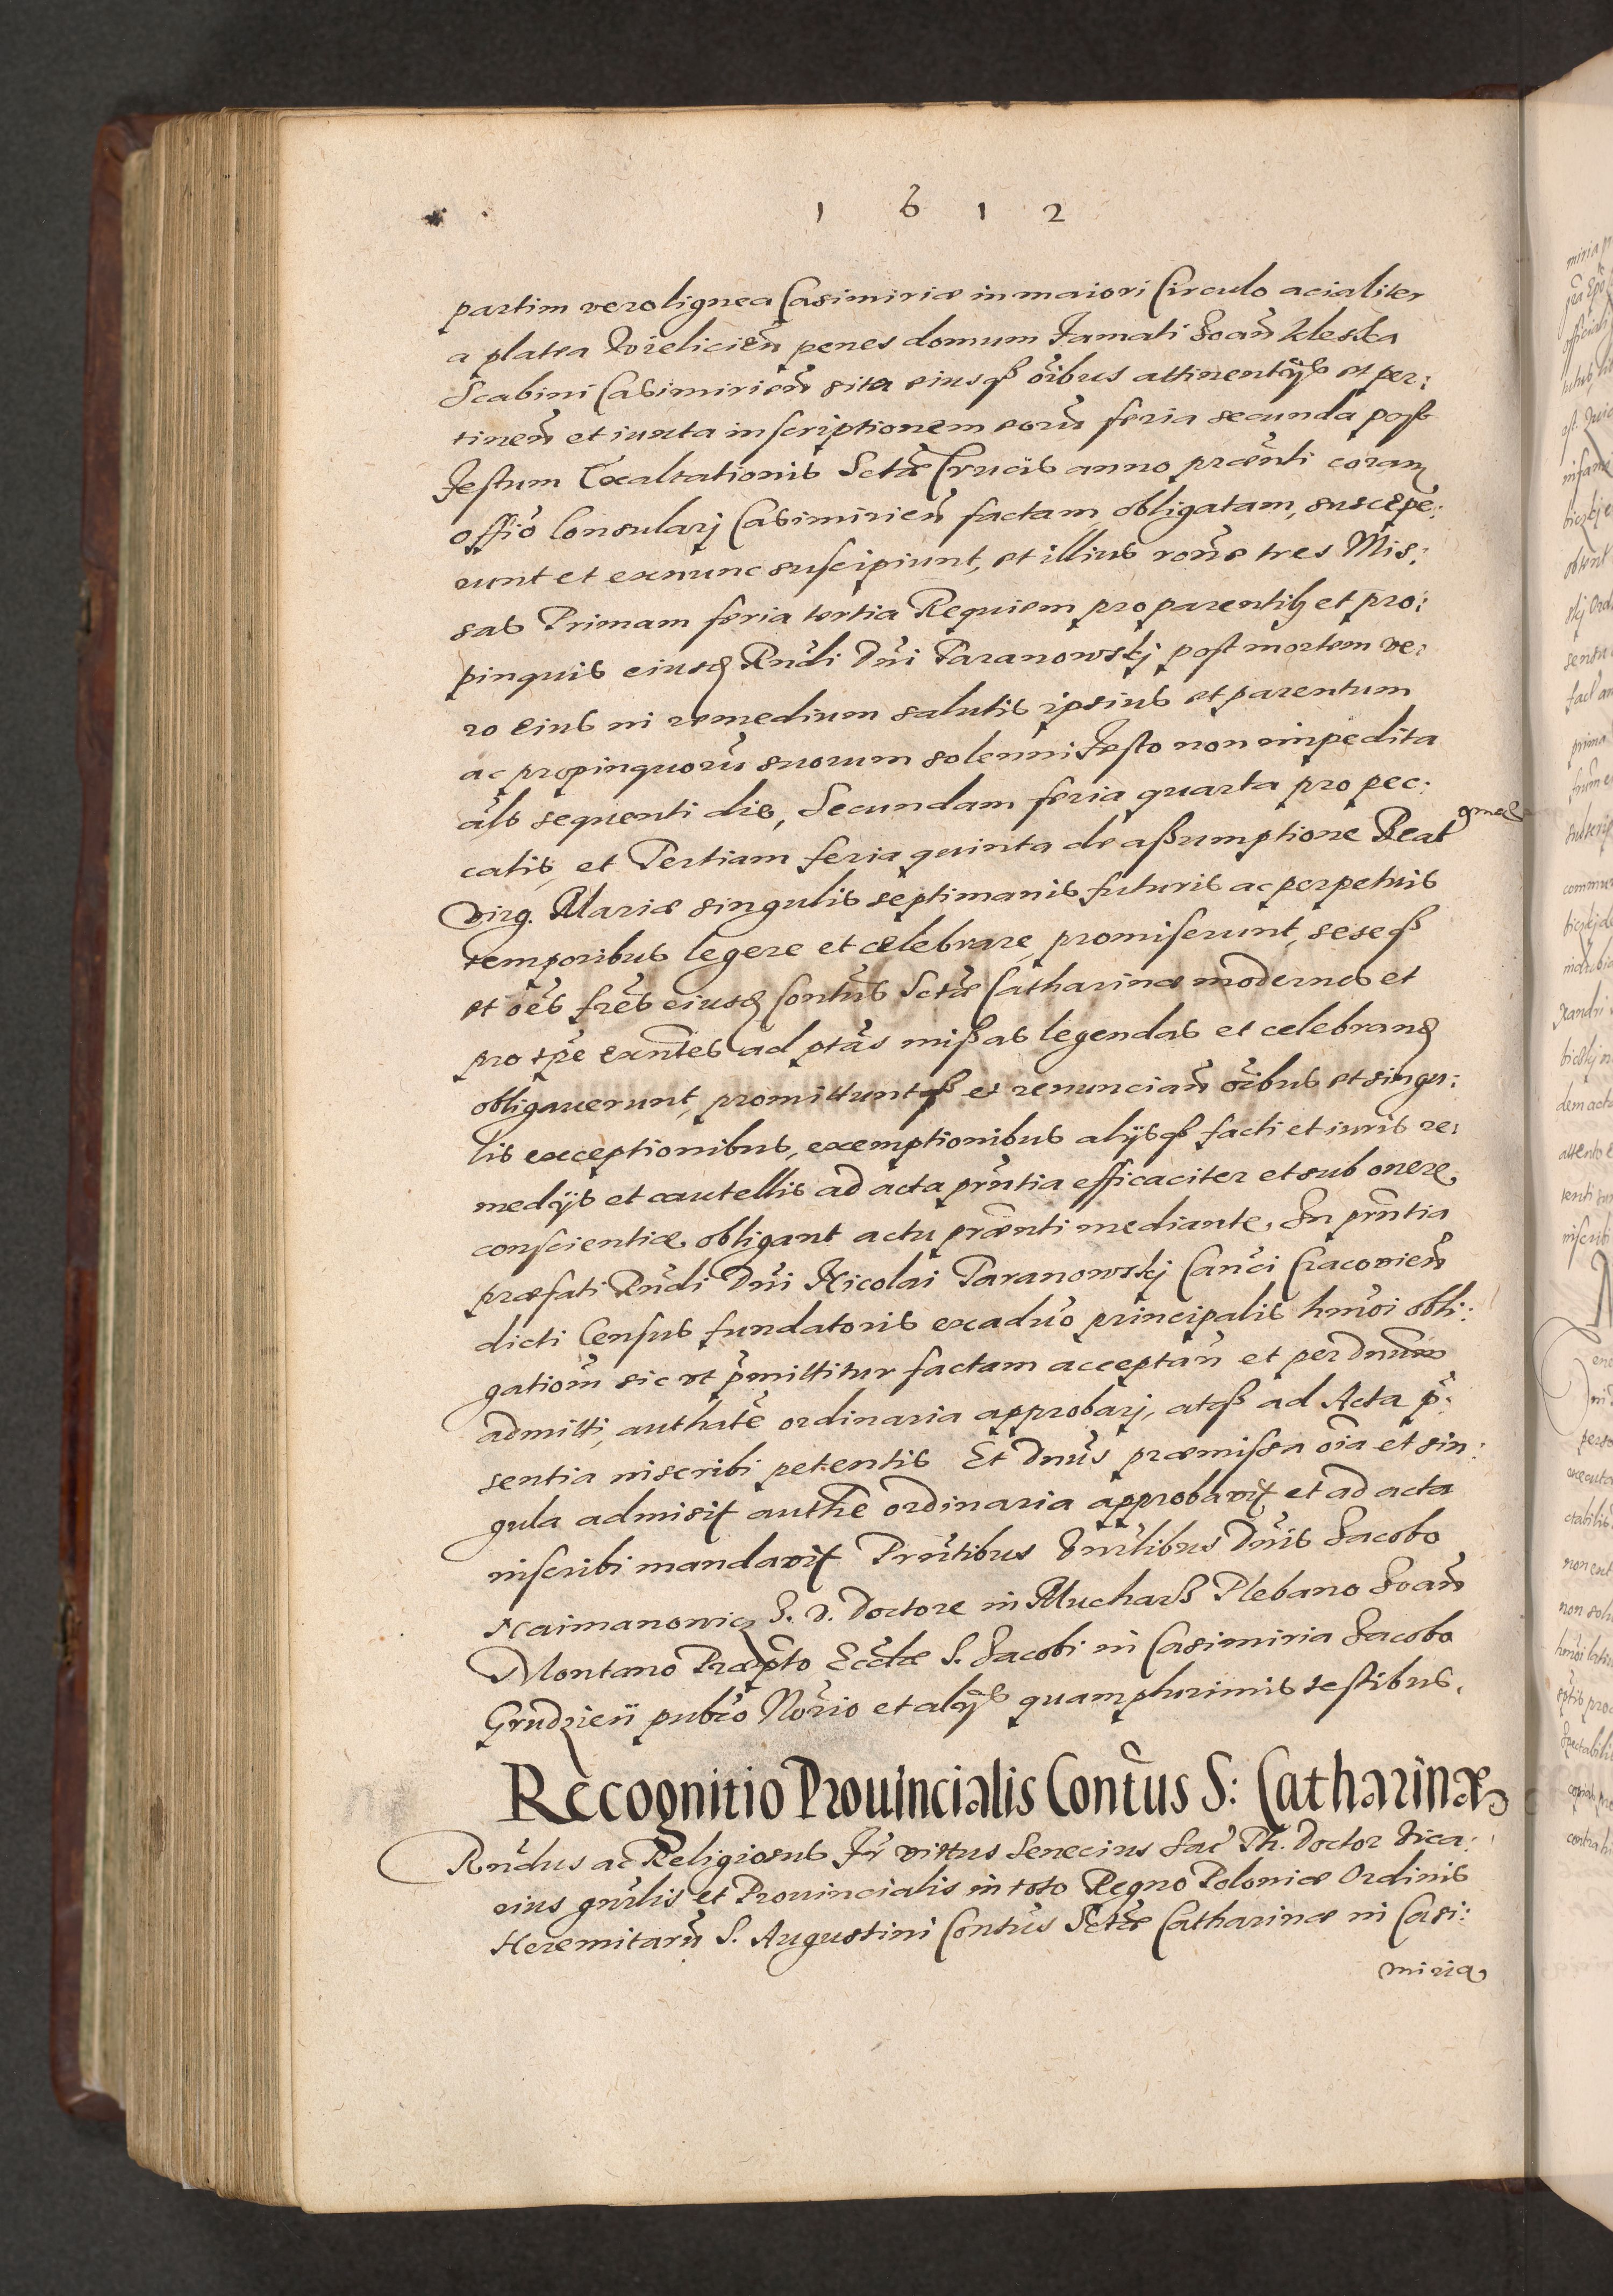 1 6 1 2
partim vero lignea Casimiriæ in maiori Circulo acialiter
a platea Wielicień penes domum Famati Joań Kleska
Scabini Casimirień sita eiusq3 oĩbus attinentijs et per:
tineń et iuxta inscriptionem eorũ feria secunda post
Festum Exaltationis Sctæ Crucis anno præñti coram
offiõ Consularj Casimirień factam, obligatam, suscepe:
runt et exnunc suscipiunt, et illius roñe tres Mis:
sas Primam feria tertia Requiem pro parentib et pro:
pinquis eiusd Rñdi Dñi Taranowskj post mortem ve:
ro eius in remedium salutis ipsius et parentum
ac propinquorũ suorum solenni Festo non impedita
als sequenti die, Secundam feria quarta pro pec:
catis, et Tertiam feria quinta de assumptione Beat
Virg. Mariæ singulis septimanis futuris ac perpetuis
temporibus legere et celebrare, promiserunt, seseq3
et oẽs frẽs eiusd Conẽtus Sctæ Catharinæ modernos et
pro tpẽ exñtes ad ptas missas legendas et celebrand
obligaverunt, promittuntq3 et renunciań oĩbus et singu:
lis exceptionibus, exemptionibus alijsq3 facti et iuris re:
medijs et cautellis ad acta prñtia efficaciter et sub onere
conscientiæ obligant actu præñti mediante, In prñtia
præfati Rñdi Dñi Nicolai Taranowskj Canĉi Cracovień
dicti Census fundatoris exaduõ principalis hmõi obli:
gatioñ sic ut p̃mittitur factam acceptań et per Dnũm
admitti, authatẽ ordinaria approbarj, atq3 ad Acta p̃:
sentia inscribi petentis Et Dnũs præmissa oĩa et sin:
gula admisit authẽ ordinaria approbavit et ad acta
inscribi mandavit Prñtibus Vñrlibus Dñis Jacobo
Naimanowicz S. D. Doctore in Mucharz Plebano Joań
Montano Præpto Eccłæ S. Jacobi in Casimiria Jacobo
Grudzień publĉo Noŕio et alijs quamplurimis testibus.
Recognitio Prouincialis Conṽtus S: Catharinæ
Rñdus ac Religiosus Fr̃ Vittus Senecius Sac̃ Th. Doctor Vica:
rius gñrlis et Prouincialis in toto Regno Poloniæ Ordinis
Heremitarũ S. Augustini Conṽtus Sctæ Catharinæ in Casi:
miria